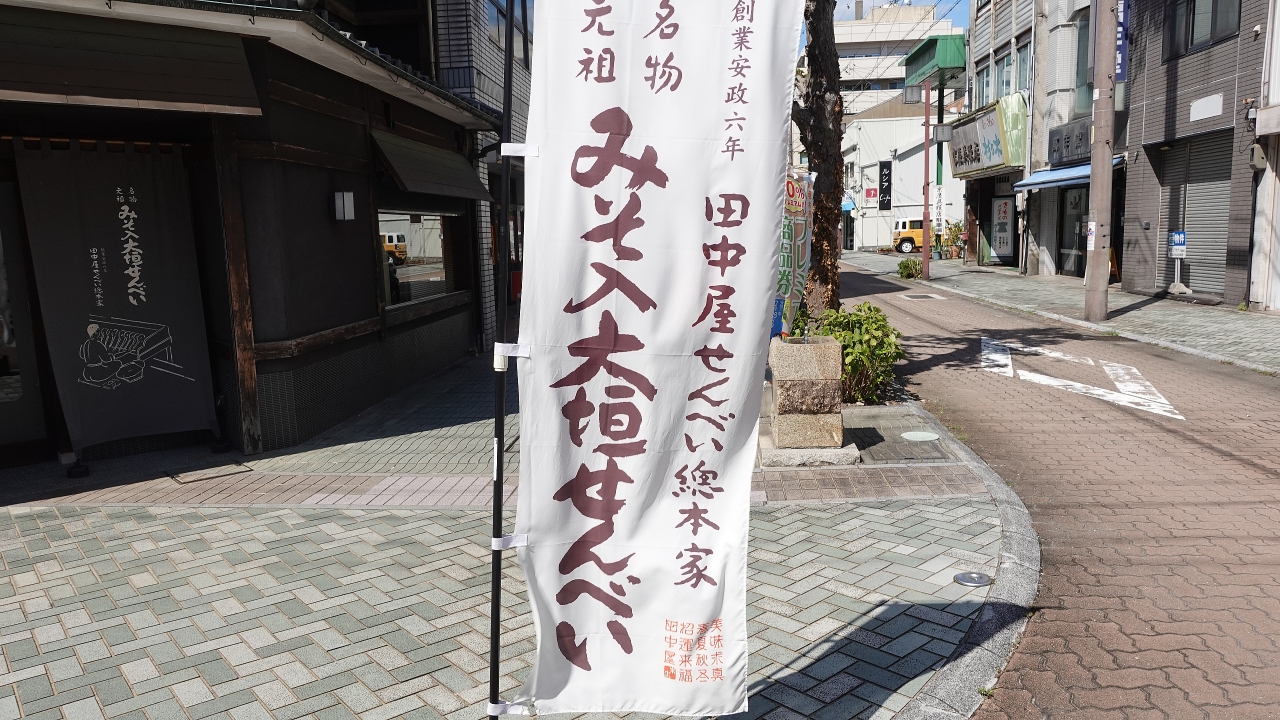 創業安政六年
田中屋せんべい總本家
名物
元祖
みそ入大垣せんべい
美味求真
春夏秋冬
招運来福
田中屋
名物
元祖
みそ入大垣せんべい
田中屋せんべい総本家
ルシアノ
物件